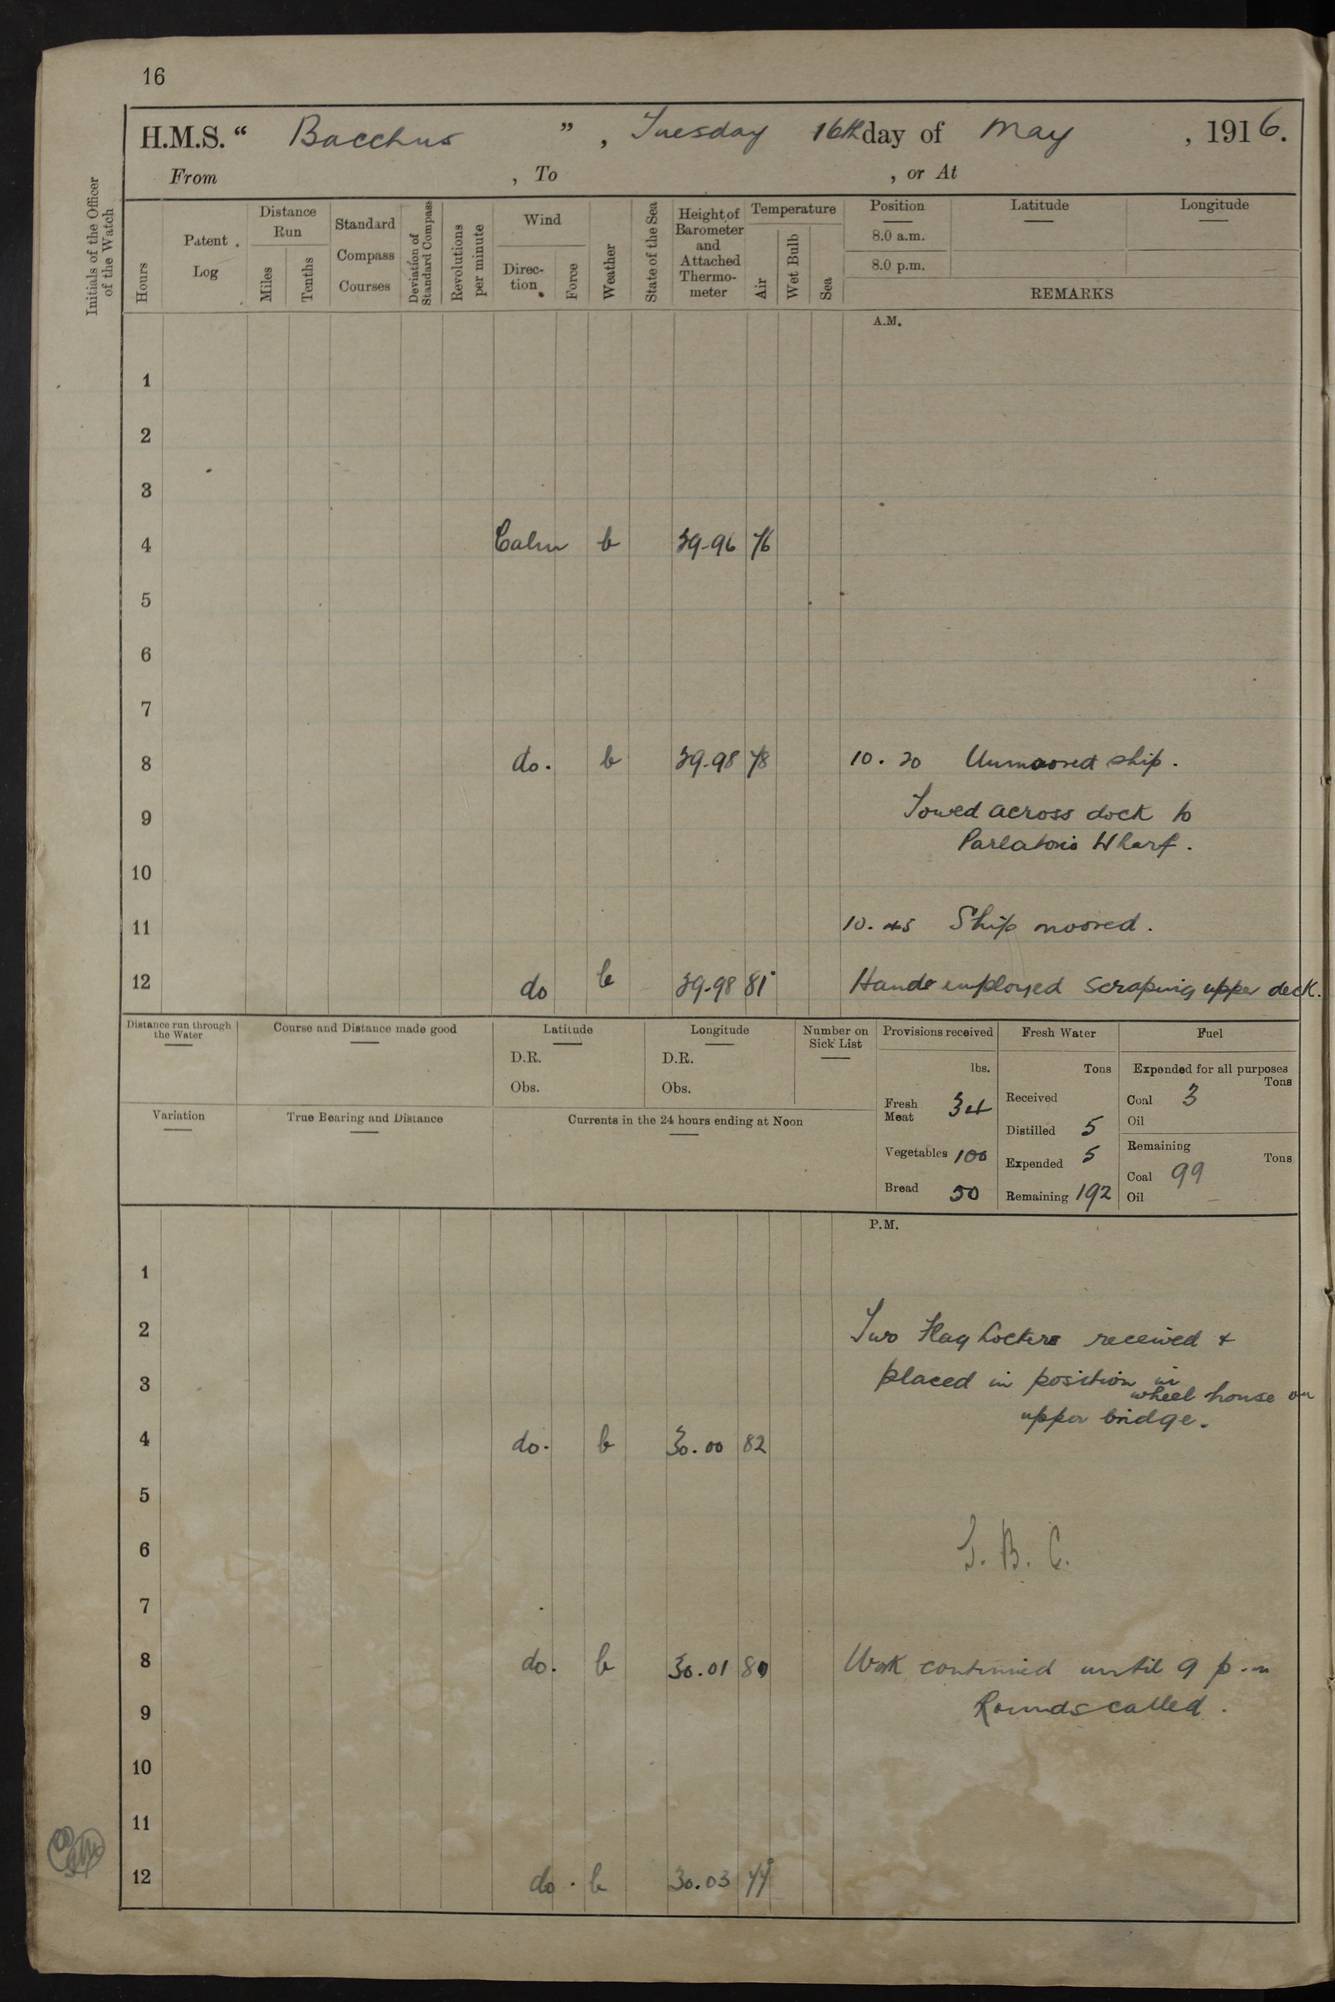 16
H.M.S. “ Bacchus ” , Tuesday 16th day of May , 1916.
From , To , or At
Initials of the Officer of the Watch
Hours
Patent Log
Distance Run
Miles
Tenths
Standard Compass Courses
Deviation of Standard Compass
Revolutions per minute
Wind
Direction
Force
Weather
State of the Sea
Height of Barometer and Attached Thermometer
Temperature
Air
Wet Bulb
Sea
Position
8.0 a.m.
8.0 p.m.
Latitude
Longitude
REMARKS
A.M.
1
2
3
4 Calm b 29.96 76
5
6
7
8 do. b 29.98 78 10.20 Unmoored ship.
9 Towed across dock to
Parlatorio Wharf.
10
11 10.45 Ship moored.
12 do b 29.98 81 Hands employed scraping upper deck.
Distance run through the Water
Course and Distance made good
Latitude
D.R.
Obs.
Longitude
D.R.
Obs.
Number on Sick List
Provisions received
lbs.
Fresh Meat 34
Vegetables 100
Bread 50
Fresh Water
Tons
Received
Distilled 5
Expended 5
Remaining 192
Fuel
Expended for all purposes
Tons
Coal 3
Oil
Remaining
Tons
Coal 99
Oil
Variation
True Bearing and Distance
Currents in the 24 hours ending at Noon
P.M.
1
2 Two Flag Lockers received &
3 placed in position in
wheel house on
upper bridge.
4 do. b 30.00 82
5
6 T. B. C.
7
8 do. b 30.01 80 Work continued until 9 p.m
9 Rounds called.
10
11
12 do. b 30.03 77